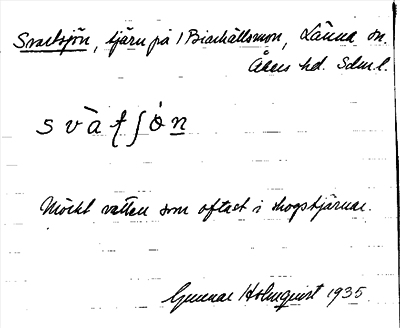 Svartsjön, tjärn på Biarhallsmon, Länna sn.
Åkers hd. Sdml.
svàtʃón
Mörkt vatten som oftast i skogstjärnar.
Gunnar Holmquist 1935